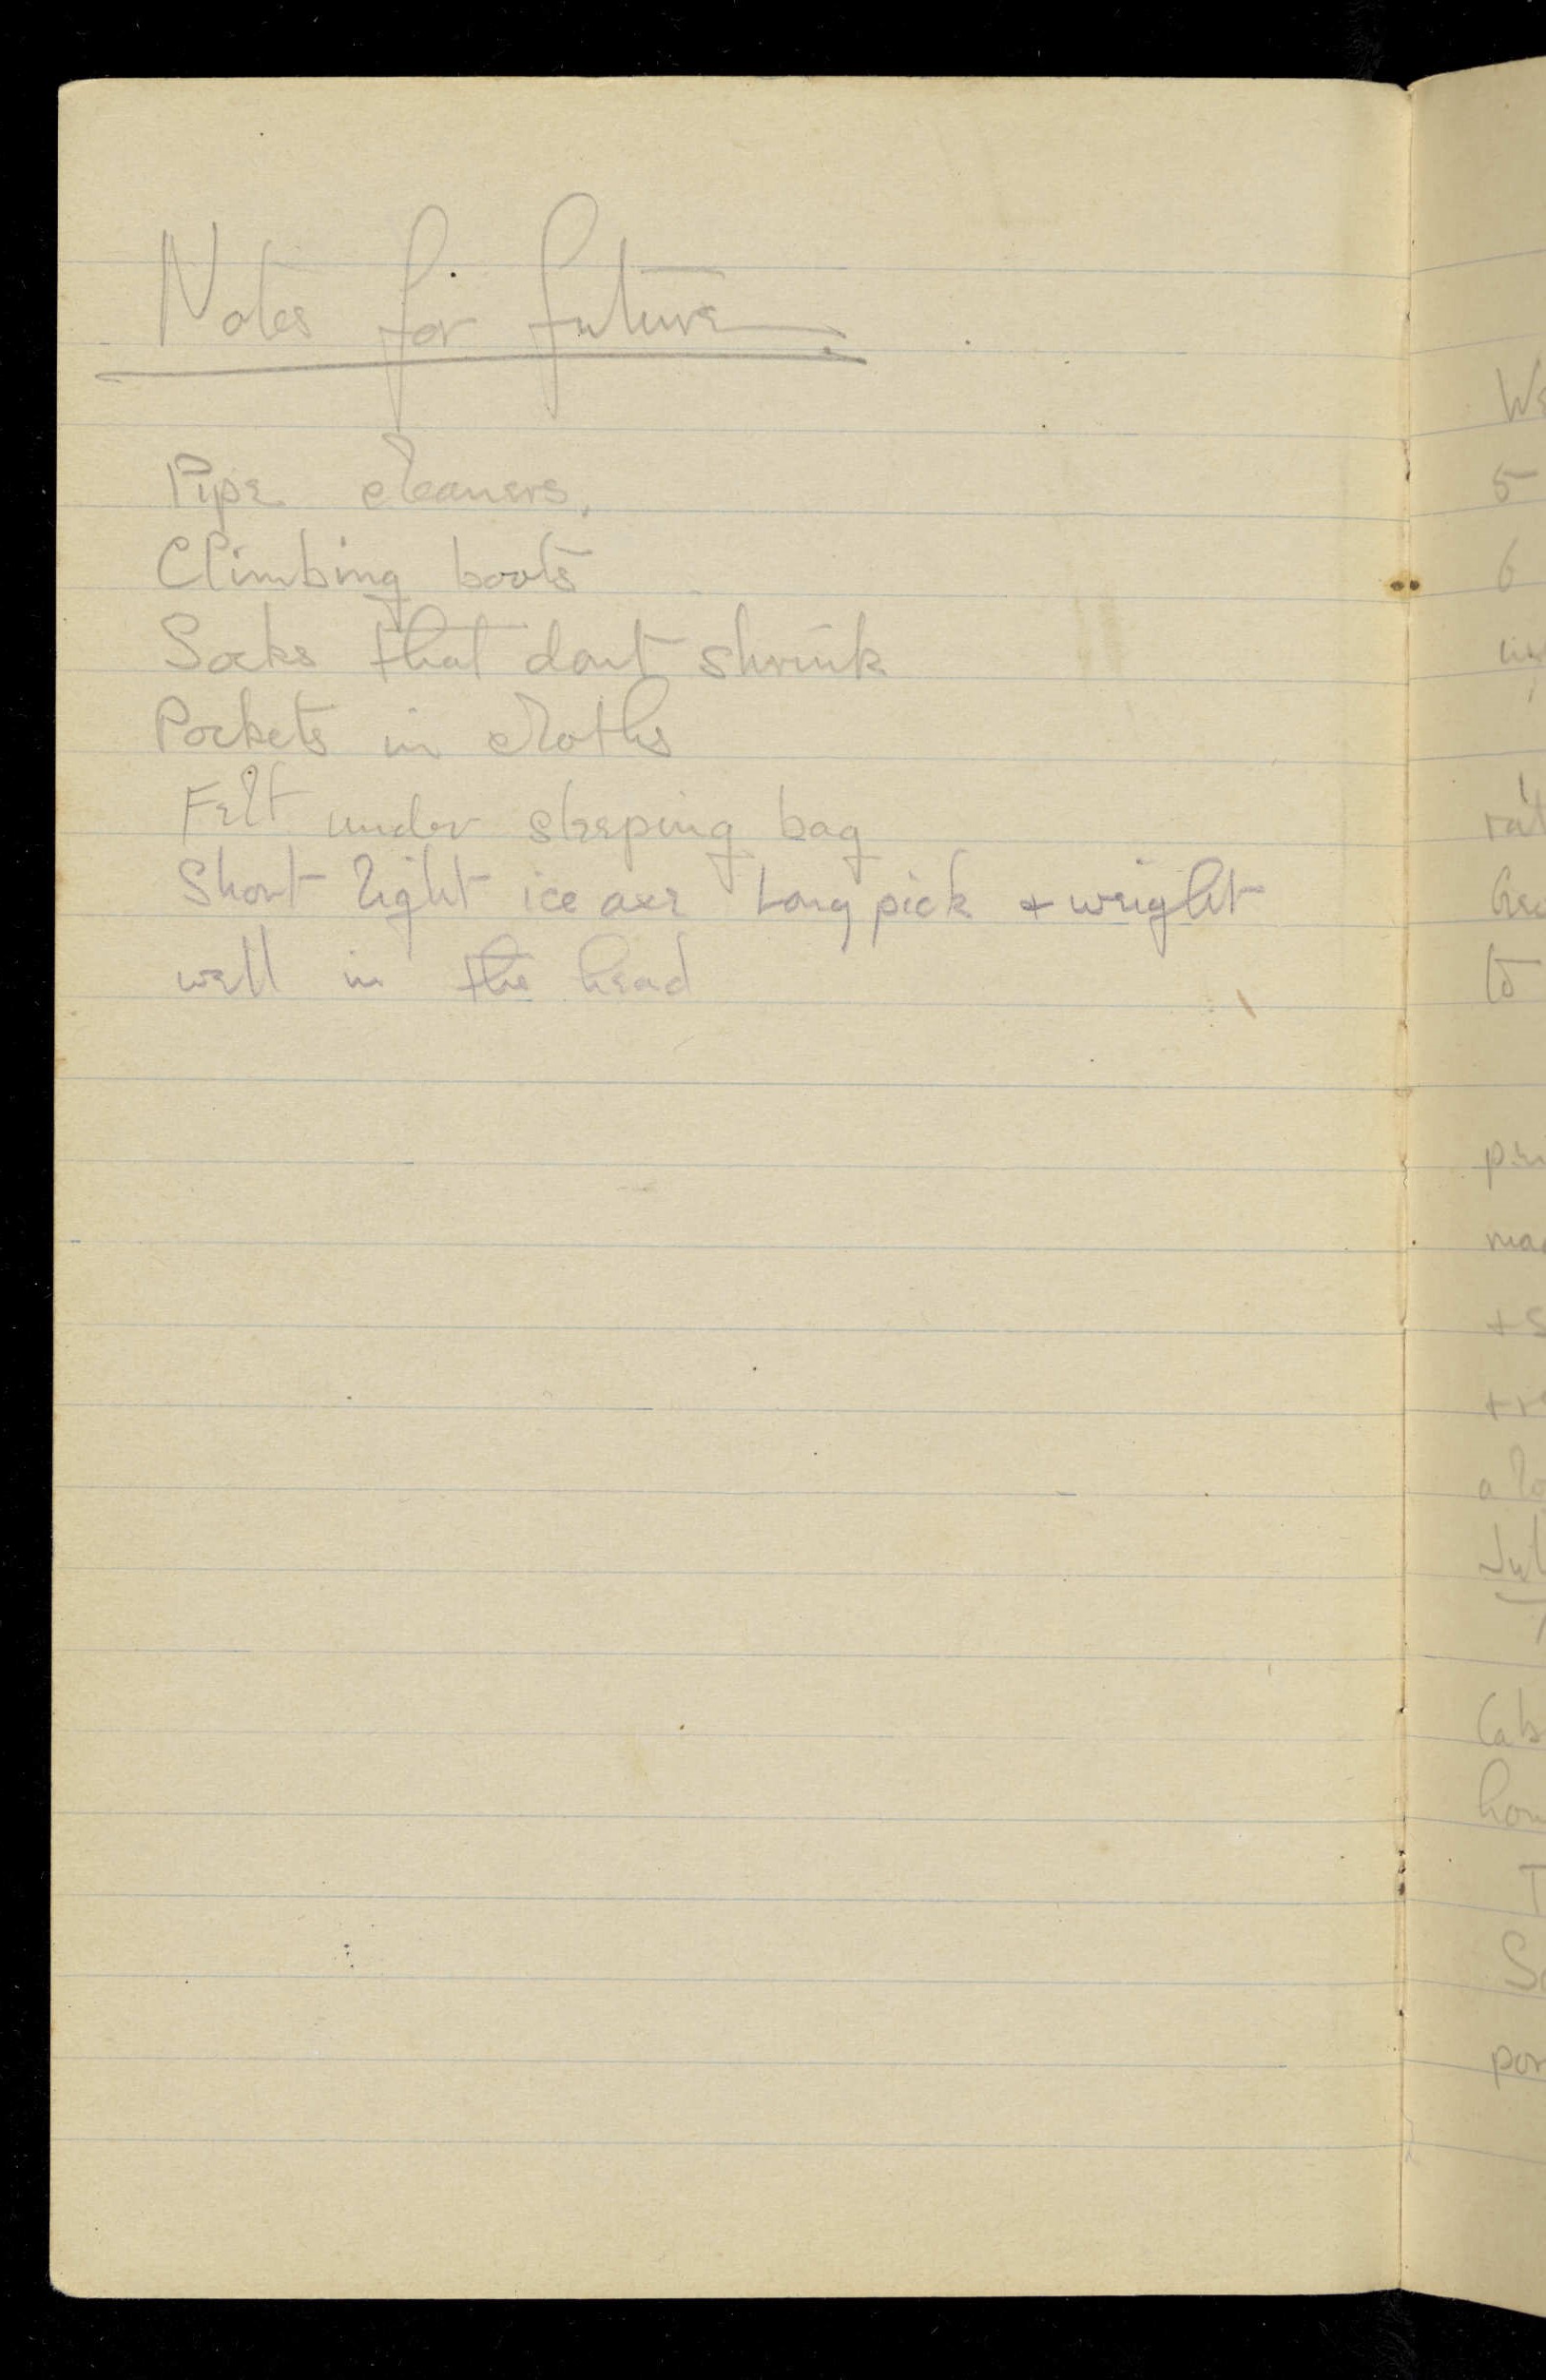 Notes for future.
Pipe cleaners,
Climbing boots
Socks that dont shrink
Pockets in cloths
Felt under sleeping bag
Short light ice axe Long pick + weight
well in the head